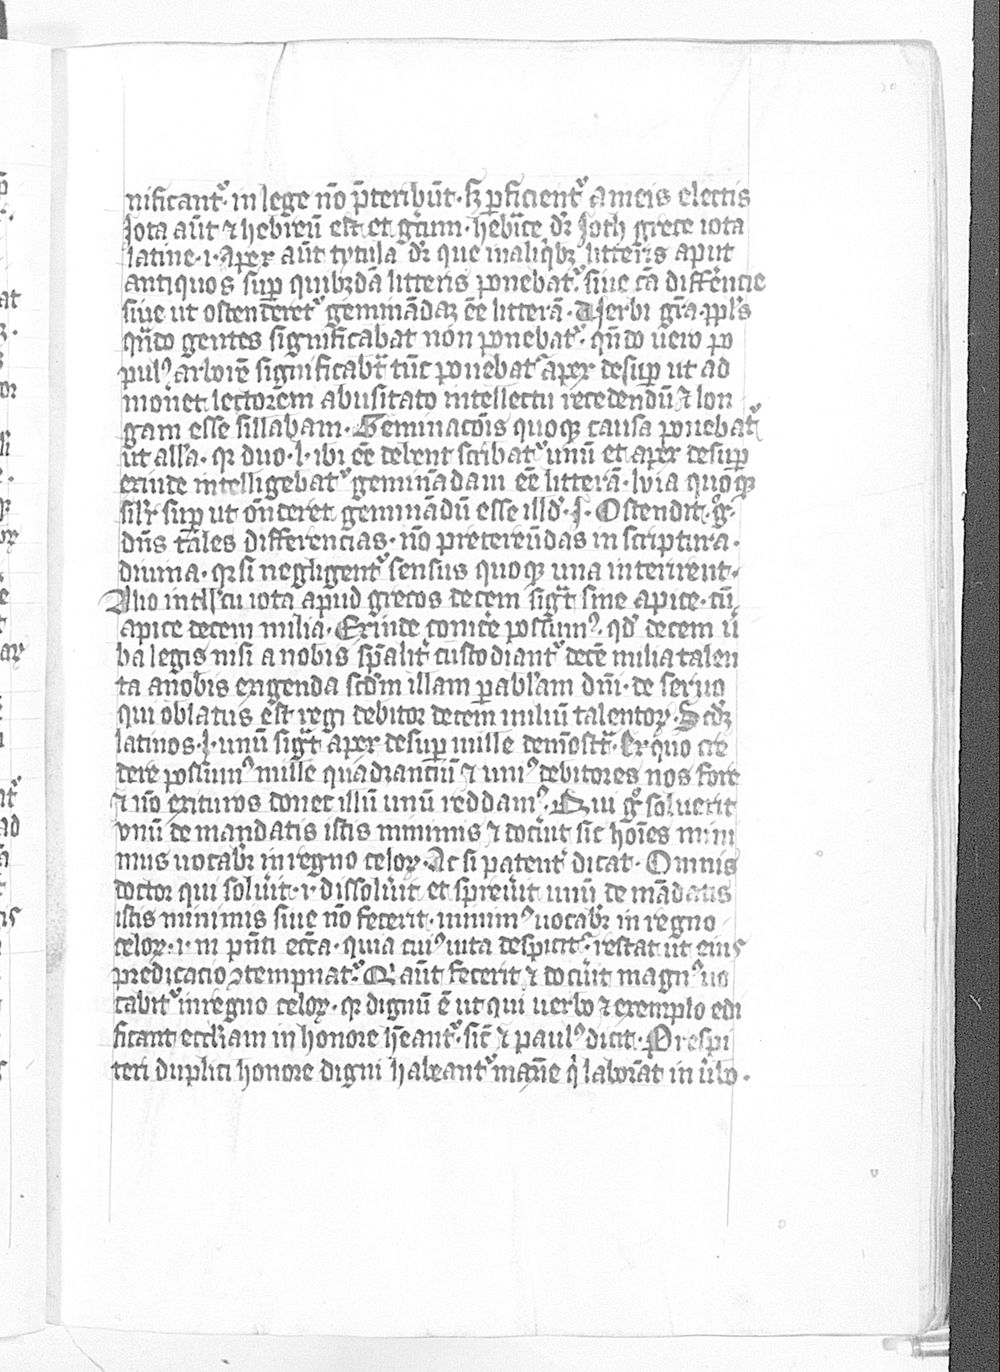 nificant᷒ in lege nō p̄teribūt · sꝫ ꝑficient᷒ a meis electis
Iota aūt ⁊ hebreū est et grecum · hebᵃice dr̄ Joth grece iota
latine · i · apex aūt tytula dr̄ que in aliqⁱbꝫ litteris aput
antiquos suꝑ quibꝫdā litteris ponebat᷒ · siue cā differēcie
siue ut ostenderet᷒ geminādaꝫ eē litterā · Uerbi gr̄a · ppl's
qn̄do gentes significabat non ponebat᷒ · qn̄do uero po
pulꝰ arborē significabt̄ tūc ponebat᷒ apex desuꝑ ut ad
moneret lectorem abusitato intellectu recedendū ⁊ lon
gam esse sillabam · Geminacōis quoqꝫ causa ponebat᷒
ut alla · qr duo · l · ibi eē debent scribat᷒ unū et apex desuꝑ
exinde intelligebat᷒ geminādam eē litterā · lvia quoqꝫ
silr̄ suꝑ ut on̄deret geminādū esse illd̄ · I · Ostendit · gͦ ·
dn̄s tales differencias · nō pretereūdas in scriptura ·
diuina · qr si negligent᷒ sensus quoqꝫ una interirent ·
Alio intll'cu iota apud grecos decem sigt̄ sine apice · cū
apice decem milia · Exinde conicē possumꝰ · qd̄ decem ū
ba legis nisi a nobis sp̄alit̄ custodiant᷒ decē milia talen
ta a nobis exigenda scd̄m illam ꝑabl'am dn̄i · de seruo
qui oblatus est regi debitor decem miliū talentoꝝ · Scdꝫ
latinos · I · unū sigt̄ apex desuꝑ mille demōstrat᷒ · Ex quo cre
dere possumꝰ mille quadrantiū ⁊ uniꝰ debitores nos fore
⁊ nō exituros donec illū unū reddamꝰ · Qui gͦ soluerit
vnū de mandatis istis minimis ⁊ docūit sic hoīes mini
mus uocabr̄ in regno celoꝝ · Ac si patent᷒ dicat · Omnis
doctor qui solūit · i · dissolūit et spreūit unū de mādatis
istis minimis siue nō fecerit · minimꝰ uocabr̄ in regno
celoꝝ · i · in pn̄ti ecc̄a · quia cuiꝰ uita despicit᷒ · restat ut eius
predicacio ꝯtempnat᷒ · Q aūt fecerit ⁊ docūit magnꝰ uo
cabit᷒ in regno celoꝝ · qr dignū ē ut qui uerbo ⁊ exemplo edi
ficant eccliam in honore hēant᷒ · sic ⁊ paulꝰ dicit · Prespi
teri duplici honore digni habeant᷒ maxīe qⁱ laborāt in ūbo ·